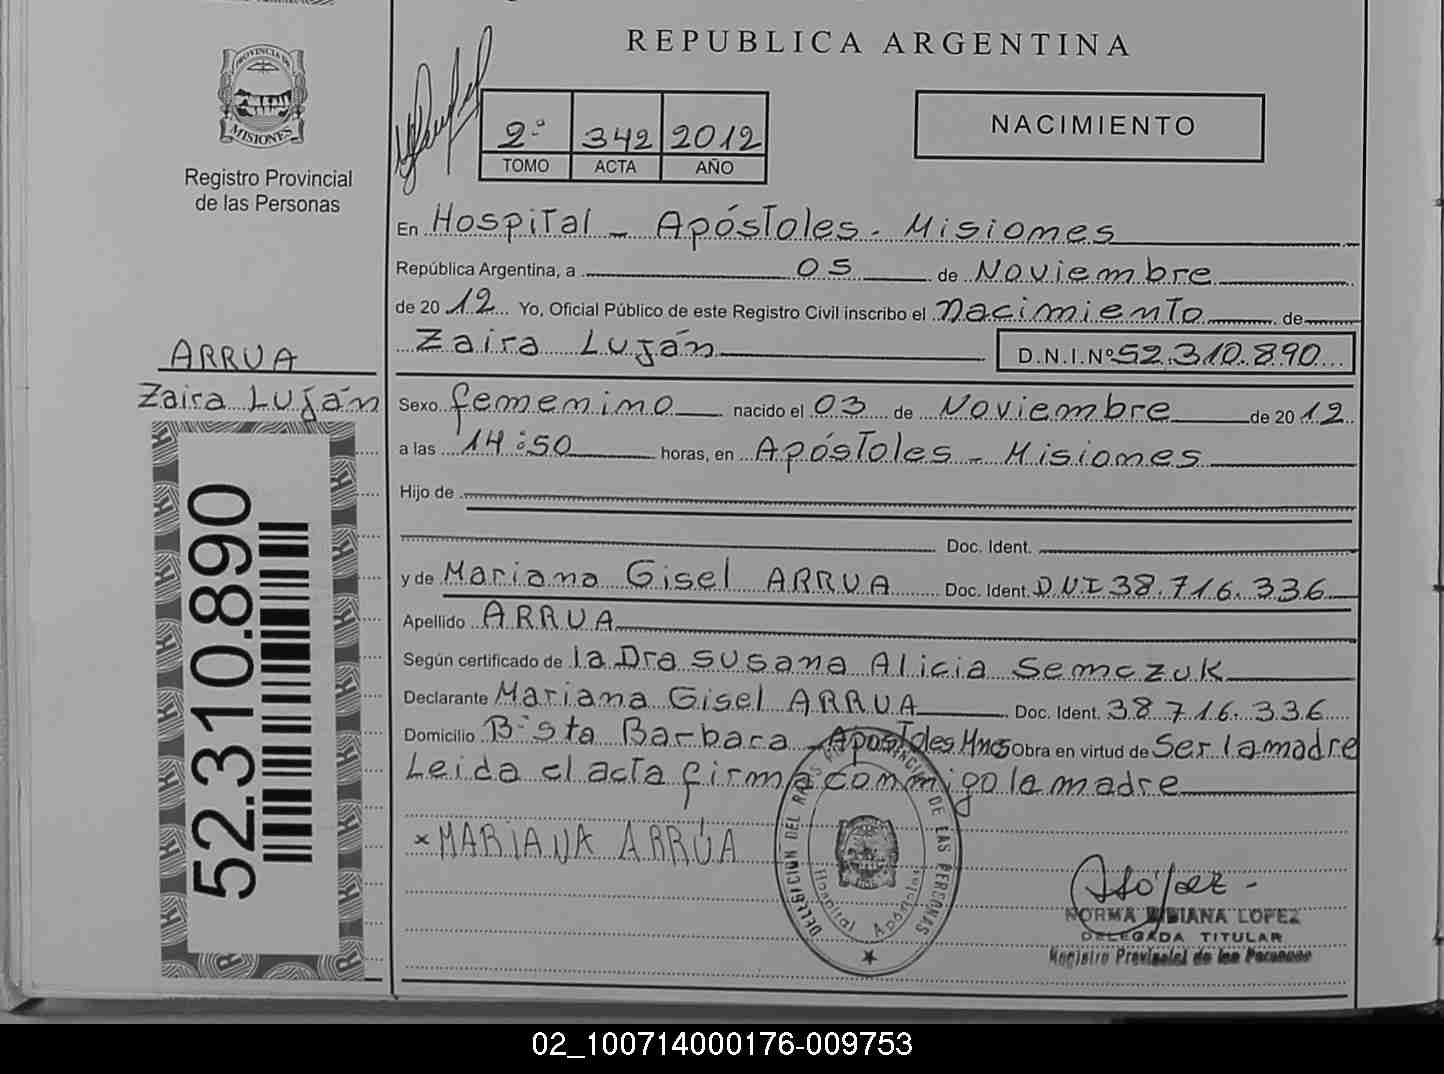 REPUBLICA ARGENTINA
PROVINCIA DE
MISIONES
Registro Provincial
de las Personas
2ª 342 2012
TOMO ACTA AÑO
NACIMIENTO
En Hospital - Apóstoles - Misiones
República Argentina, a 05 de Noviembre
de 2012 Yo, Oficial Público de este Registro Civil inscribo el nacimiento de
Zaira Luján D.N.I.Nº 52.310.890
ARRUA
Zaira Luján
Sexo femenino nacido el 03 de Noviembre de 2012
a las 14:50 horas, en Apóstoles - Misiones
Hijo de
Doc. Ident.
y de Mariana Gisel ARRUA Doc. Ident. D.N.I 38.716.336
Apellido ARRUA
Según certificado de la Dra Susana Alicia Semczuk
Declarante Mariana Gisel ARRUA Doc. Ident. 38.716.336
Domicilio Bº Sta Barbara - Apostoles Mnes Obra en virtud de Ser la madre
Leida el acta firma conmigo la madre
52.310.890
x MARIANA ARRÚA
DE LAS PERSONAS
Hospital Apóstoles
NORMA BIBIANA LOPEZ
DELEGADA TITULAR
Registro Provincial de las Personas
02_100714000176-009753